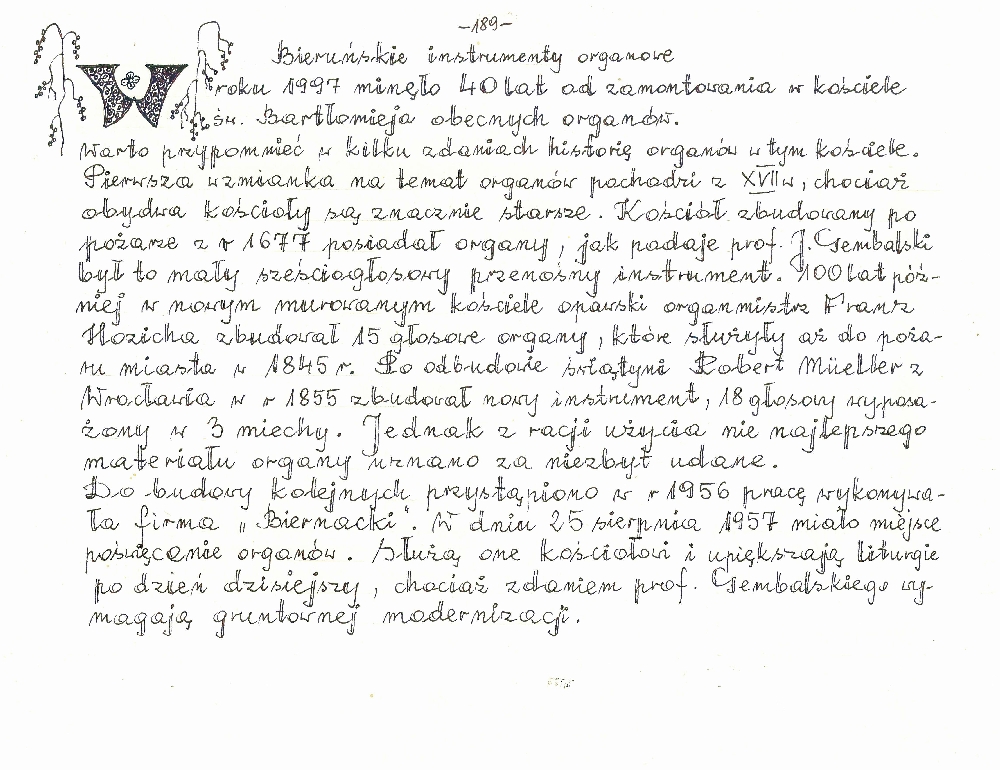 -189-
Bieruńskie instrumenty organowe
W roku 1997 minęło 40 lat od zamontowania w kościele
św. Bartłomieja obecnych organów.
Warto przypomnieć w kilku zdaniach historię organów w tym kościele.
Pierwsza wzmianka na temat organów pochodzi z XVII w, chociaż
obydwa kościoły są znacznie starsze. Kościół zbudowany po
pożarze z r 1677 posiadał organy, jak podaje prof. J. Gembalski
był to mały sześciogłosowy przenośny instrument. 100 lat póź-
niej w nowym murowanym kościele opawski organmistrz Franz
Hozicha zbudował 15 głosowe organy, które służyły aż do poża-
ru miasta w 1845 r. Po odbudowie świątyni Robert Müeller z
Wrocławia w r 1855 zbudował nowy instrument, 18 głosowy wyposa-
żony w 3 miechy. Jednak z racji użycia nie najlepszego
materiału organy uznano za niezbyt udane.
Do budowy kolejnych przystąpiono w r 1956 pracę wykonywa-
ła firma „Biernacki". W dniu 25 sierpnia 1957 miało miejsce
poświęcenie organów. Służą one kościołowi i upiększają liturgie
po dzień dzisiejszy, chociaż zdaniem prof. Gembalskiego wy-
magają gruntownej modernizacji.